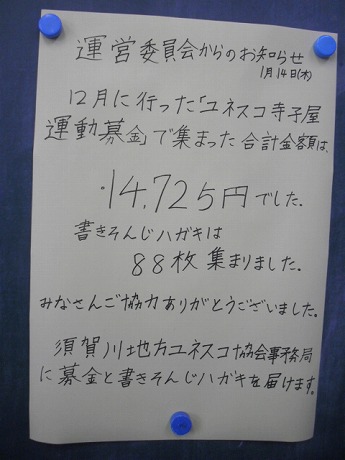 運営委員会からのお知らせ
1月14日(木)
12月に行った「ユネスコ寺子屋
運動募金」で集まった合計金額は、
14,725円でした。
書きそんじハガキは
88枚集まりました。
みなさんご協力ありがとうございました。
須賀川地方ユネスコ協会事務局
に募金と書きそんじハガキを届けます。